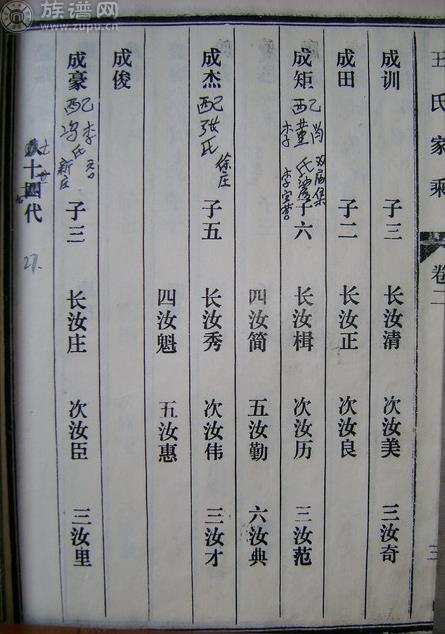 王氏家乘
卷二
三
成训 子三 长汝清 次汝美 三汝奇
成田 子二 长汝正 次汝良
成矩 配 董氏 子六 长汝楫 次汝历 三汝范
四汝简 五汝勤 六汝典
成杰 配张氏 徐庄 子五 长汝秀 次汝伟 三汝才
四汝魁 五汝惠
成俊
成豪 配 冯氏 李 新庄 子三 长汝庄 次汝臣 三汝里
十四代
27
族谱网
www.zupu.cn